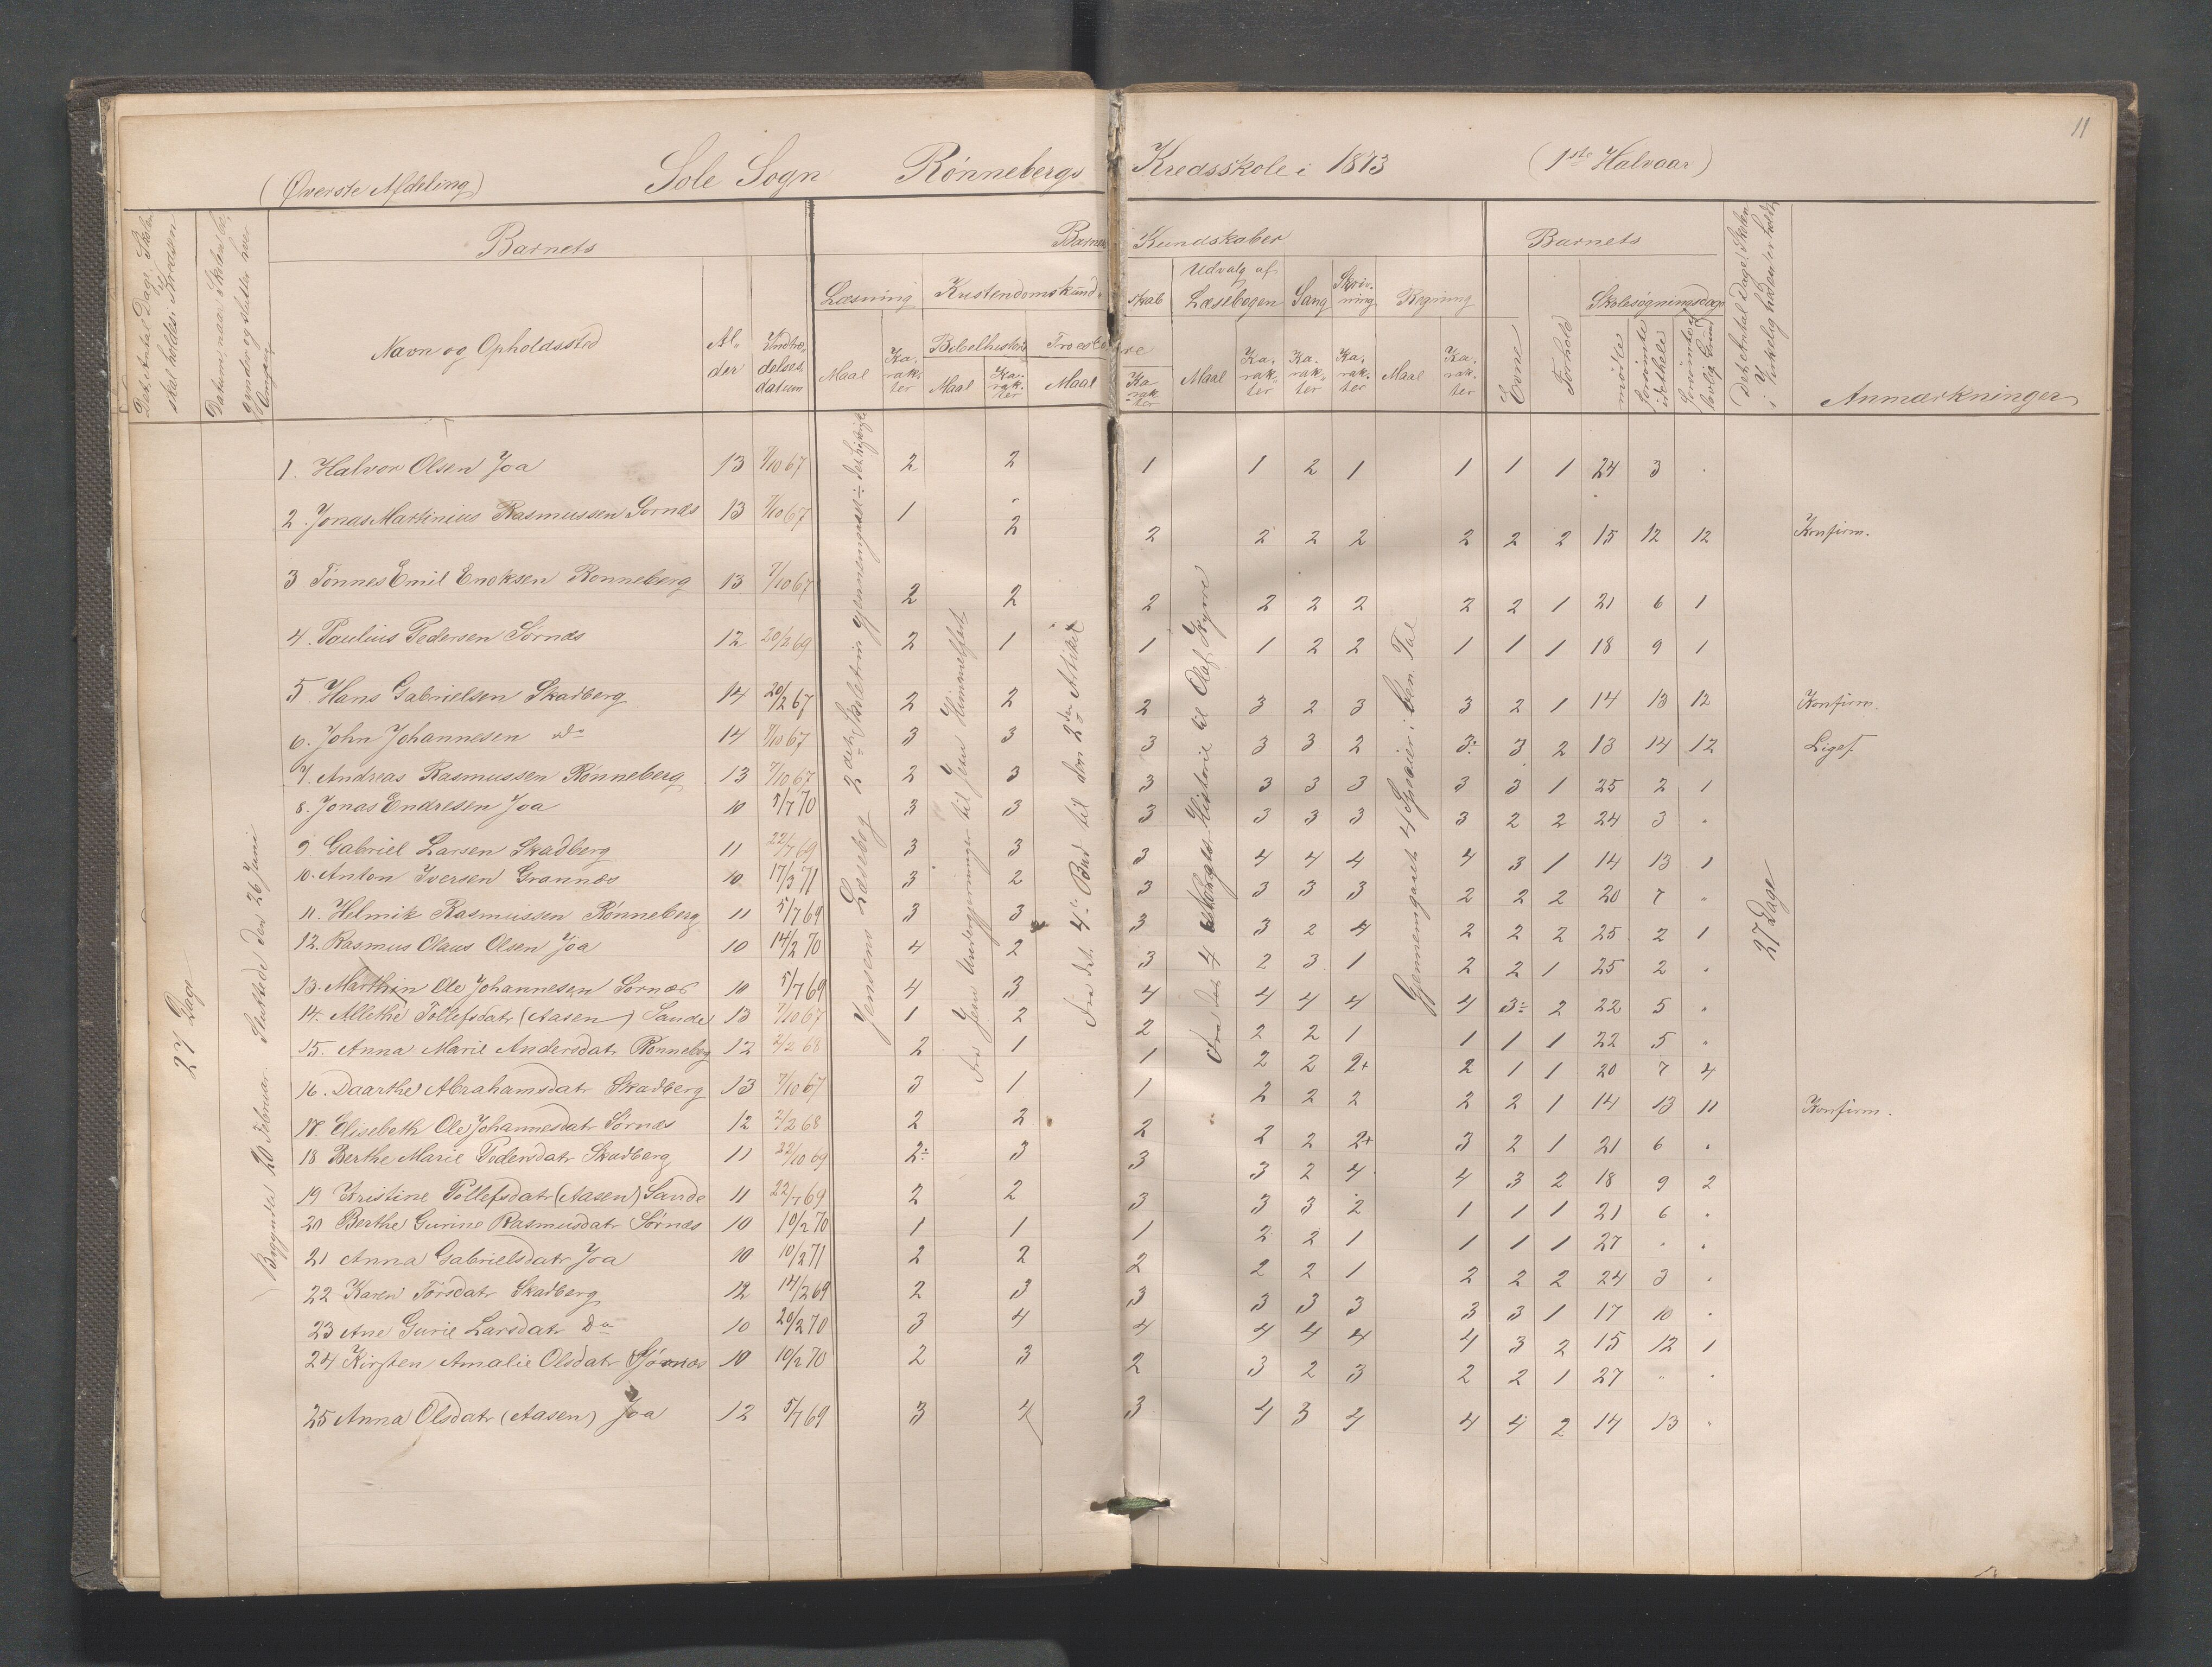 11
(Øverste Afdeling) Sole Sogn Rønnebergs Kredsskole i 1873 (1ste Halvaar)
Det Antal Dage Skolen skal holdes i Kredsen
Barnets
Barnets Kundskaber
Barnets
Det Antal Dage Skolen i Virkeligheden er holdt
Anmærkninger
Navn og Opholdssted
Alder
Indtrædelsesdatum
Læsning
Kristendomskundskab
Udvalg af Læsebogen
Sang
Skrivning
Regning
Evne
Forhold
Skolesøgningsdage
Bibelhistorie
Troeslære
Maal
Karakter
Maal
Karakter
Maal
Karakter
Maal
Karakter
Karakter
Karakter
Maal
Karakter
mødte
forsømte i det hele
forsømte af lovlig Grund
27 Dage
Begyndte 20 Februar. Sluttede den 26 Juni
Jensens Læsebog 2det Skoletrin gjennemgaaet ÷ det historiske
Fra Jesu Undergjerninger til Jesu Himmelfart
Fra det 4. Bud til den 2den Artikel
Gjennemgaaet 4 Specier i ben. Tal
27 Dage
1. Halvor Olsen Joa 13 7/10 67 2 2 1 1 2 1 1 1 1 24 3 .
2. Jonas Martinius Rasmussen Sornæs 13 7/10 67 1 2 2 2 2 2 2 2 2 15 12 12 Konfirm.
3 Tönnes Emil Enoksen Ronneberg 13 7/10 67 2 2 2 2 2 2 2 2 1 21 6 1
4. Paulius Pedersen Sörnæs 12 20/2 69 2 1 1 1 2 2 1 1 1 18 9 1
5. Hans Gabrielsen Skadberg 14 20/2 67 2 2 2 3 2 3 3 2 1 14 13 12 Konfirm.
6. John Johannesen do 14 7/10 67 3 3 3 3 3 2 3÷ 3 2 13 14 12 Ligef.
7. Andreas Rasmussen Rønneberg 13 7/10 67 2 3 3 3 3 3 3 3 1 25 2 1
8. Jonas Endresen Joa 10 5/7 70 3 3 3 3 3 3 3 2 2 24 3 .
9. Gabriel Larsen Skadberg 11 22/7 69 3 3 3 4 4 4 4 3 1 14 13 1
10. Anton Iversen Grannæs 10 17/3 71 3 2 3 3 3 3 2 2 2 20 7 "
11. Helmik Rasmussen Rønneberg 11 5/7 69 3 3 3 3 2 4 2 2 2 25 2 1
12. Rasmus Olaus Olsen Joa 10 14/2 70 4 2 3 2 3 1 2 2 1 25 2 .
13. Marthin Ole Johannesen Sornæs 10 5/7 69 4 3 4 4 4 4 4 3÷ 2 22 5 "
14. Allethe Tollefsdatr (Aasen) Sande 13 7/10 67 1 2 2 2 2 1 1 1 1 22 5 "
15. Anna Marie Andersdatr Rønneberg 12 2/2 68 2 1 1 2 2 2+ 2 1 1 20 7 4
16. Daarthe Abrahamsdatr Skadberg 13 7/10 67 3 1 1 2 2 2 2 2 1 14 13 11 Konfirm.
17. Elisebeth Ole Johannesdatr Sörnæs 12 2/2 68 2 2 2 2 2 2+ 3 2 1 21 6 .
18 Berthe Marie Pedersdatr Skadberg 11 22/10 69 2÷ 3 3 3 2 4 4 3 2 18 9 2
19 Kristine Tollefsdatr (Aasen) Sande 11 22/7 69 2 2 3 3 3 2 1 1 1 21 6 .
20 Berthe Gurine Rasmusdatr Sørnæs 10 10/2 70 1 1 1 2 2 1 1 1 1 27 . .
21 Anna Gabrielsdatr Joa 10 10/2 71 2 2 2 2 2 1 2 2 2 24 3 .
22 Karen Torsdatr Skadberg 12 14/2 69 2 3 3 3 3 3 3 3 1 17 10 .
23 Ane Gurie Larsdatr Do 10 20/2 70 3 4 4 4 4 4 4 3 2 15 12 1
24 Kirsten Amalie Olsdatr Sørnæs 10 10/2 70 2 3 2 3 2 3 2 2 1 27 " .
25 Anna Olsdatr (Aasen) Joa 12 5/7 69 3 4 3 4 3 4 4 4 2 14 13 "